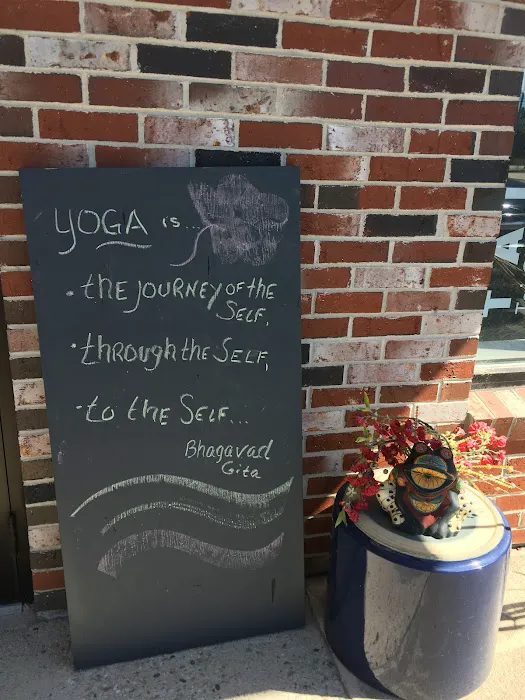 YOGA is...
• the JOURNEY of the
SELF,
• through the SELF,
• to the SELF...
Bhagavad
Gita